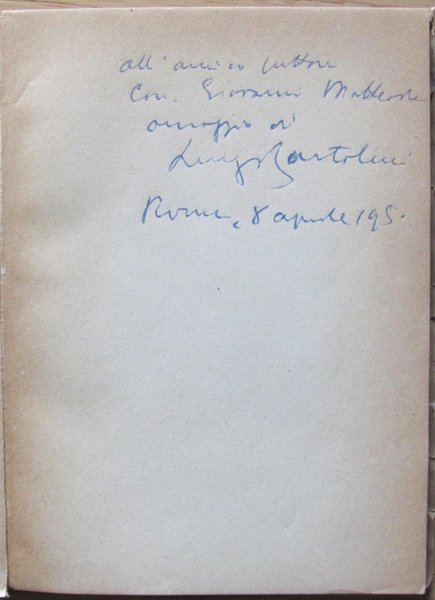 all'amico pittore
Con. Giovanni
omaggio di
Luigi Bartolini
Roma, 8 aprile 195